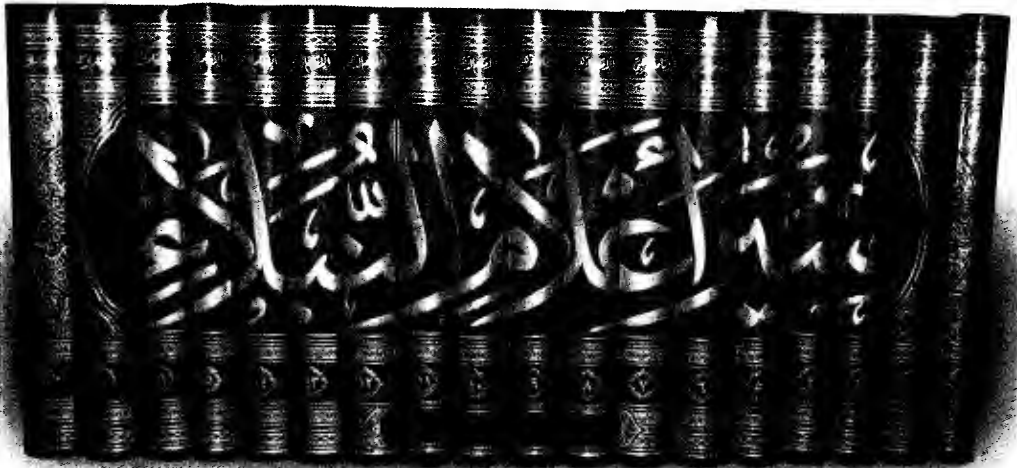 سير أعلام النبلاء